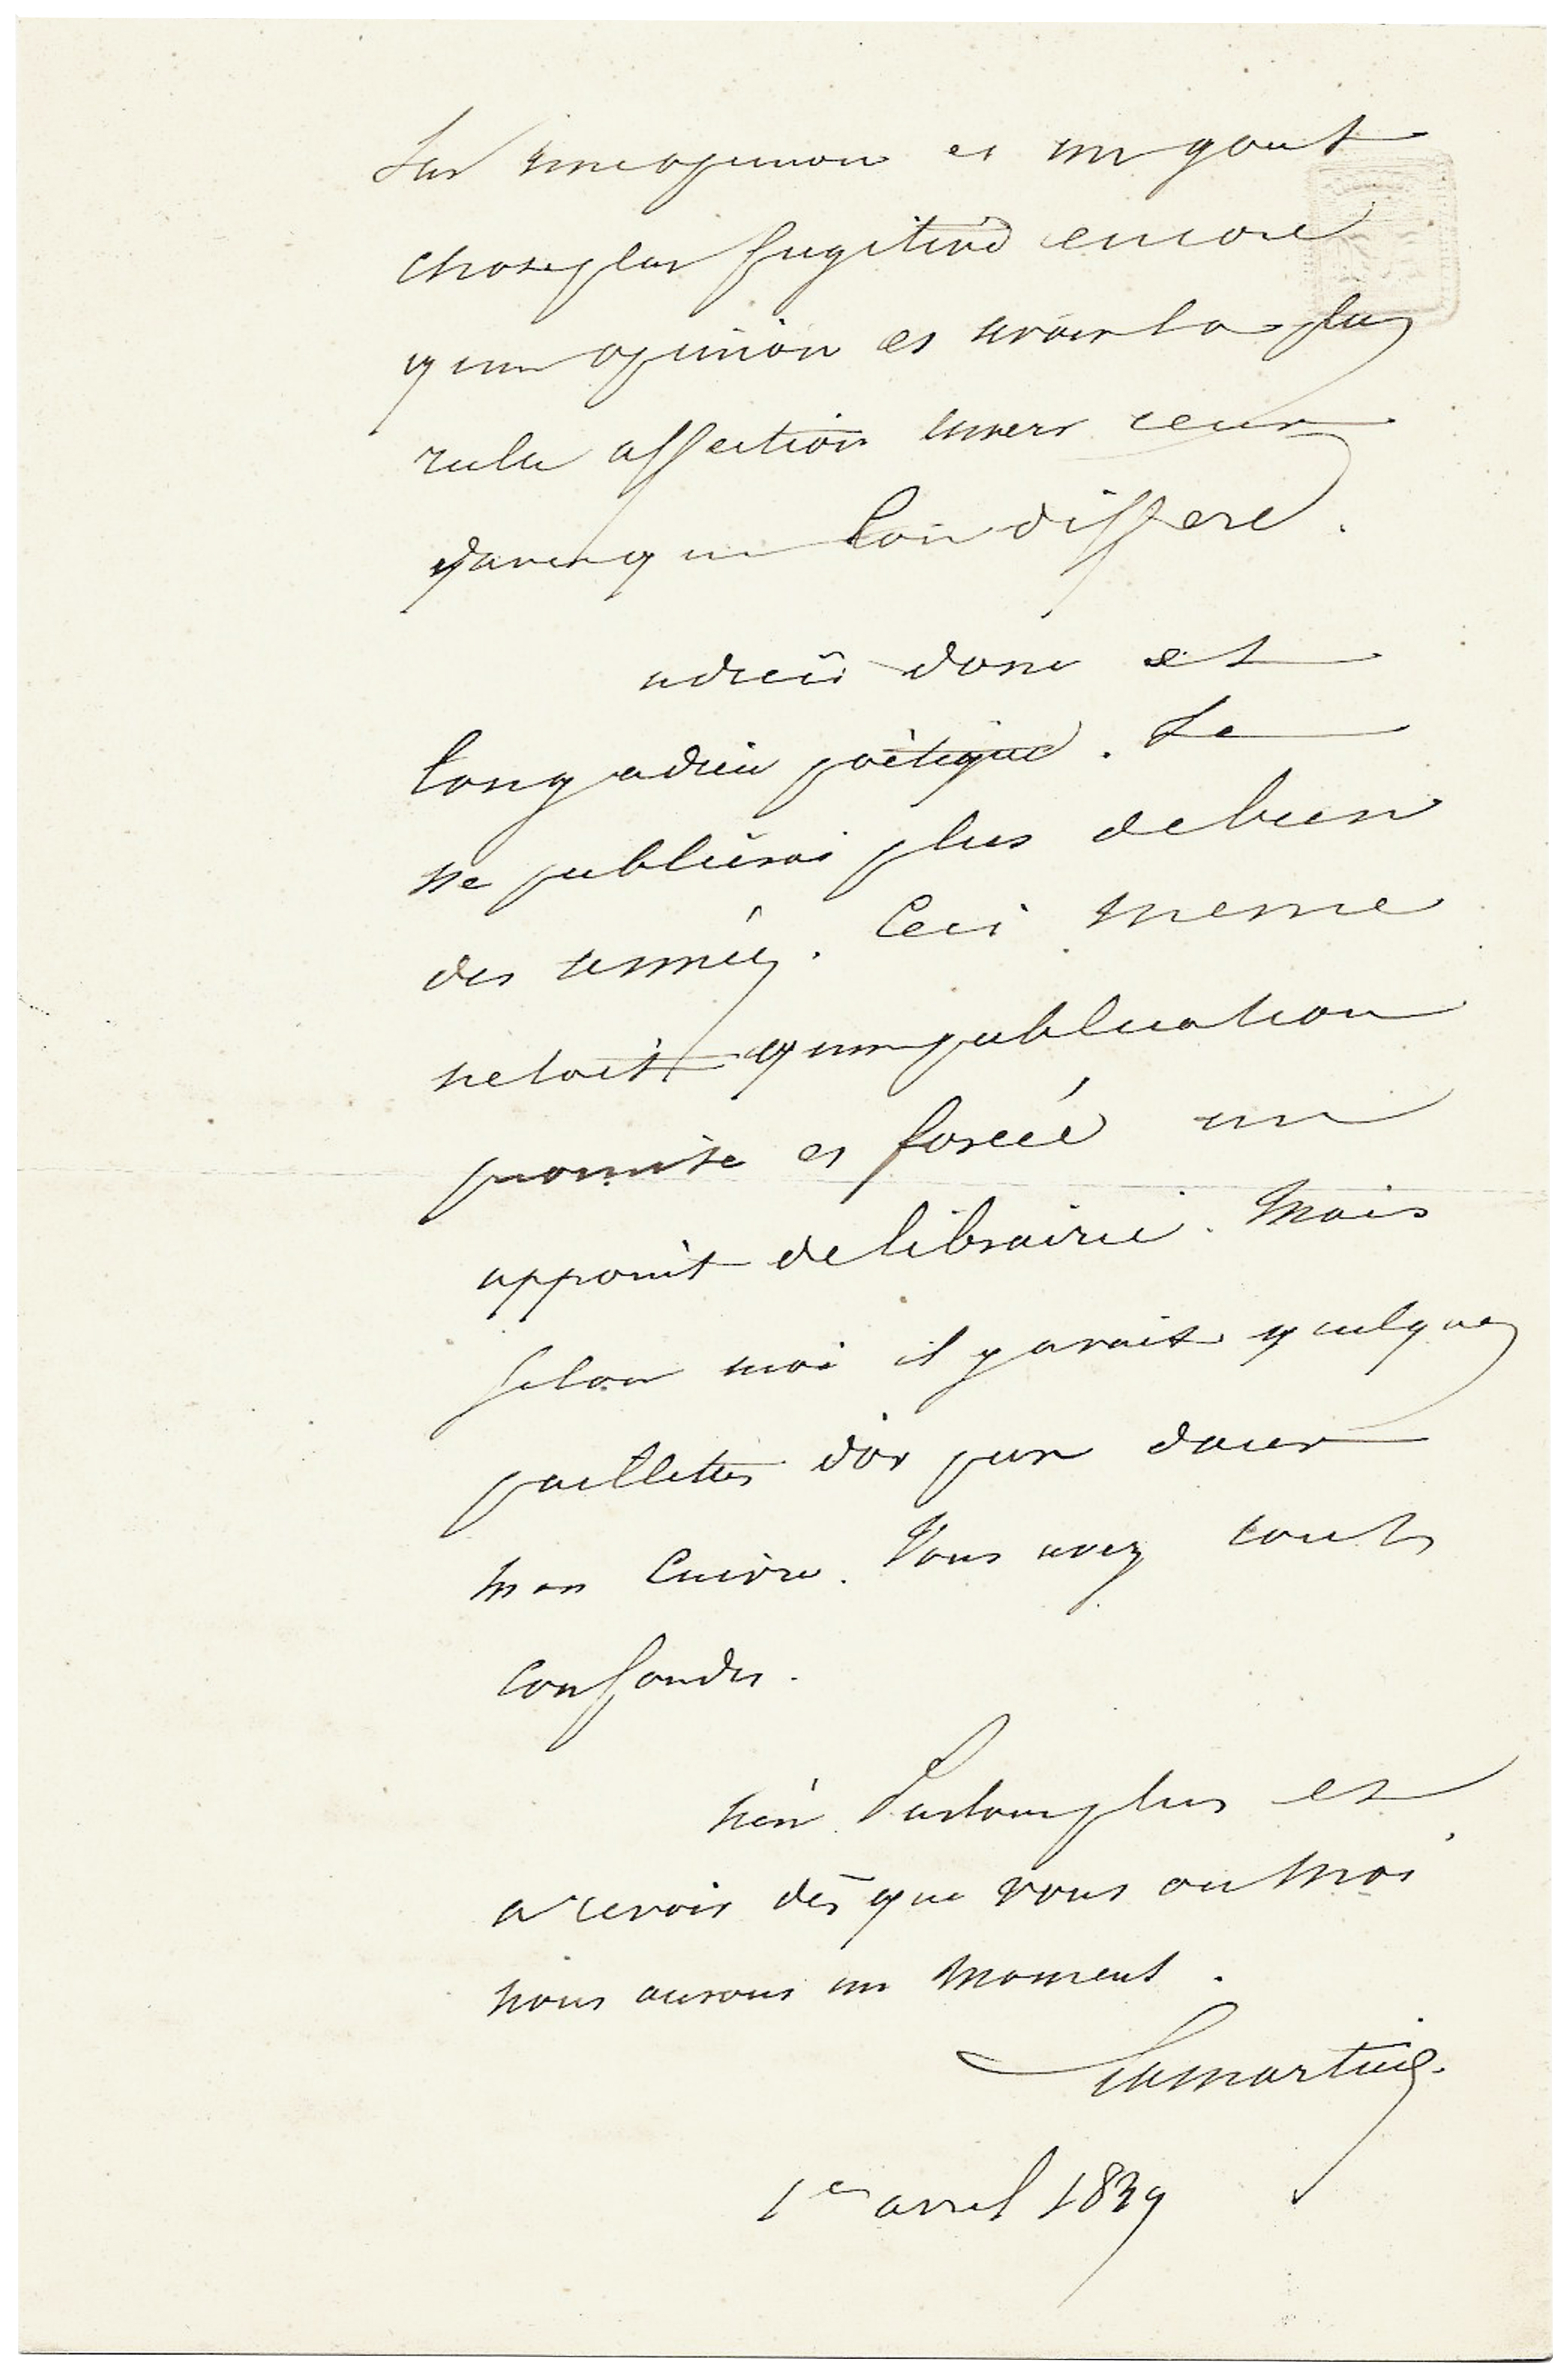 sur une opinion et un gout
chose plus fugitive encore
qune opinion et avoir la plus
réelle affection envers ceux
davec qui lon differe.
adieu donc et
long adieu poètique. Je
ne publierai plus de bien
des années. Ceci meme
netoit qune publication
promise et forcée un
appoint de librairie. Mais
selon moi il y avait quelques
paillettes d'or pur dans
mon cuivre. Vous avez tout
confondu.
n'en parlons plus et
a revoir dès que vous ou moi
nous aurons un moment.
Lamartine
1er avril 1839